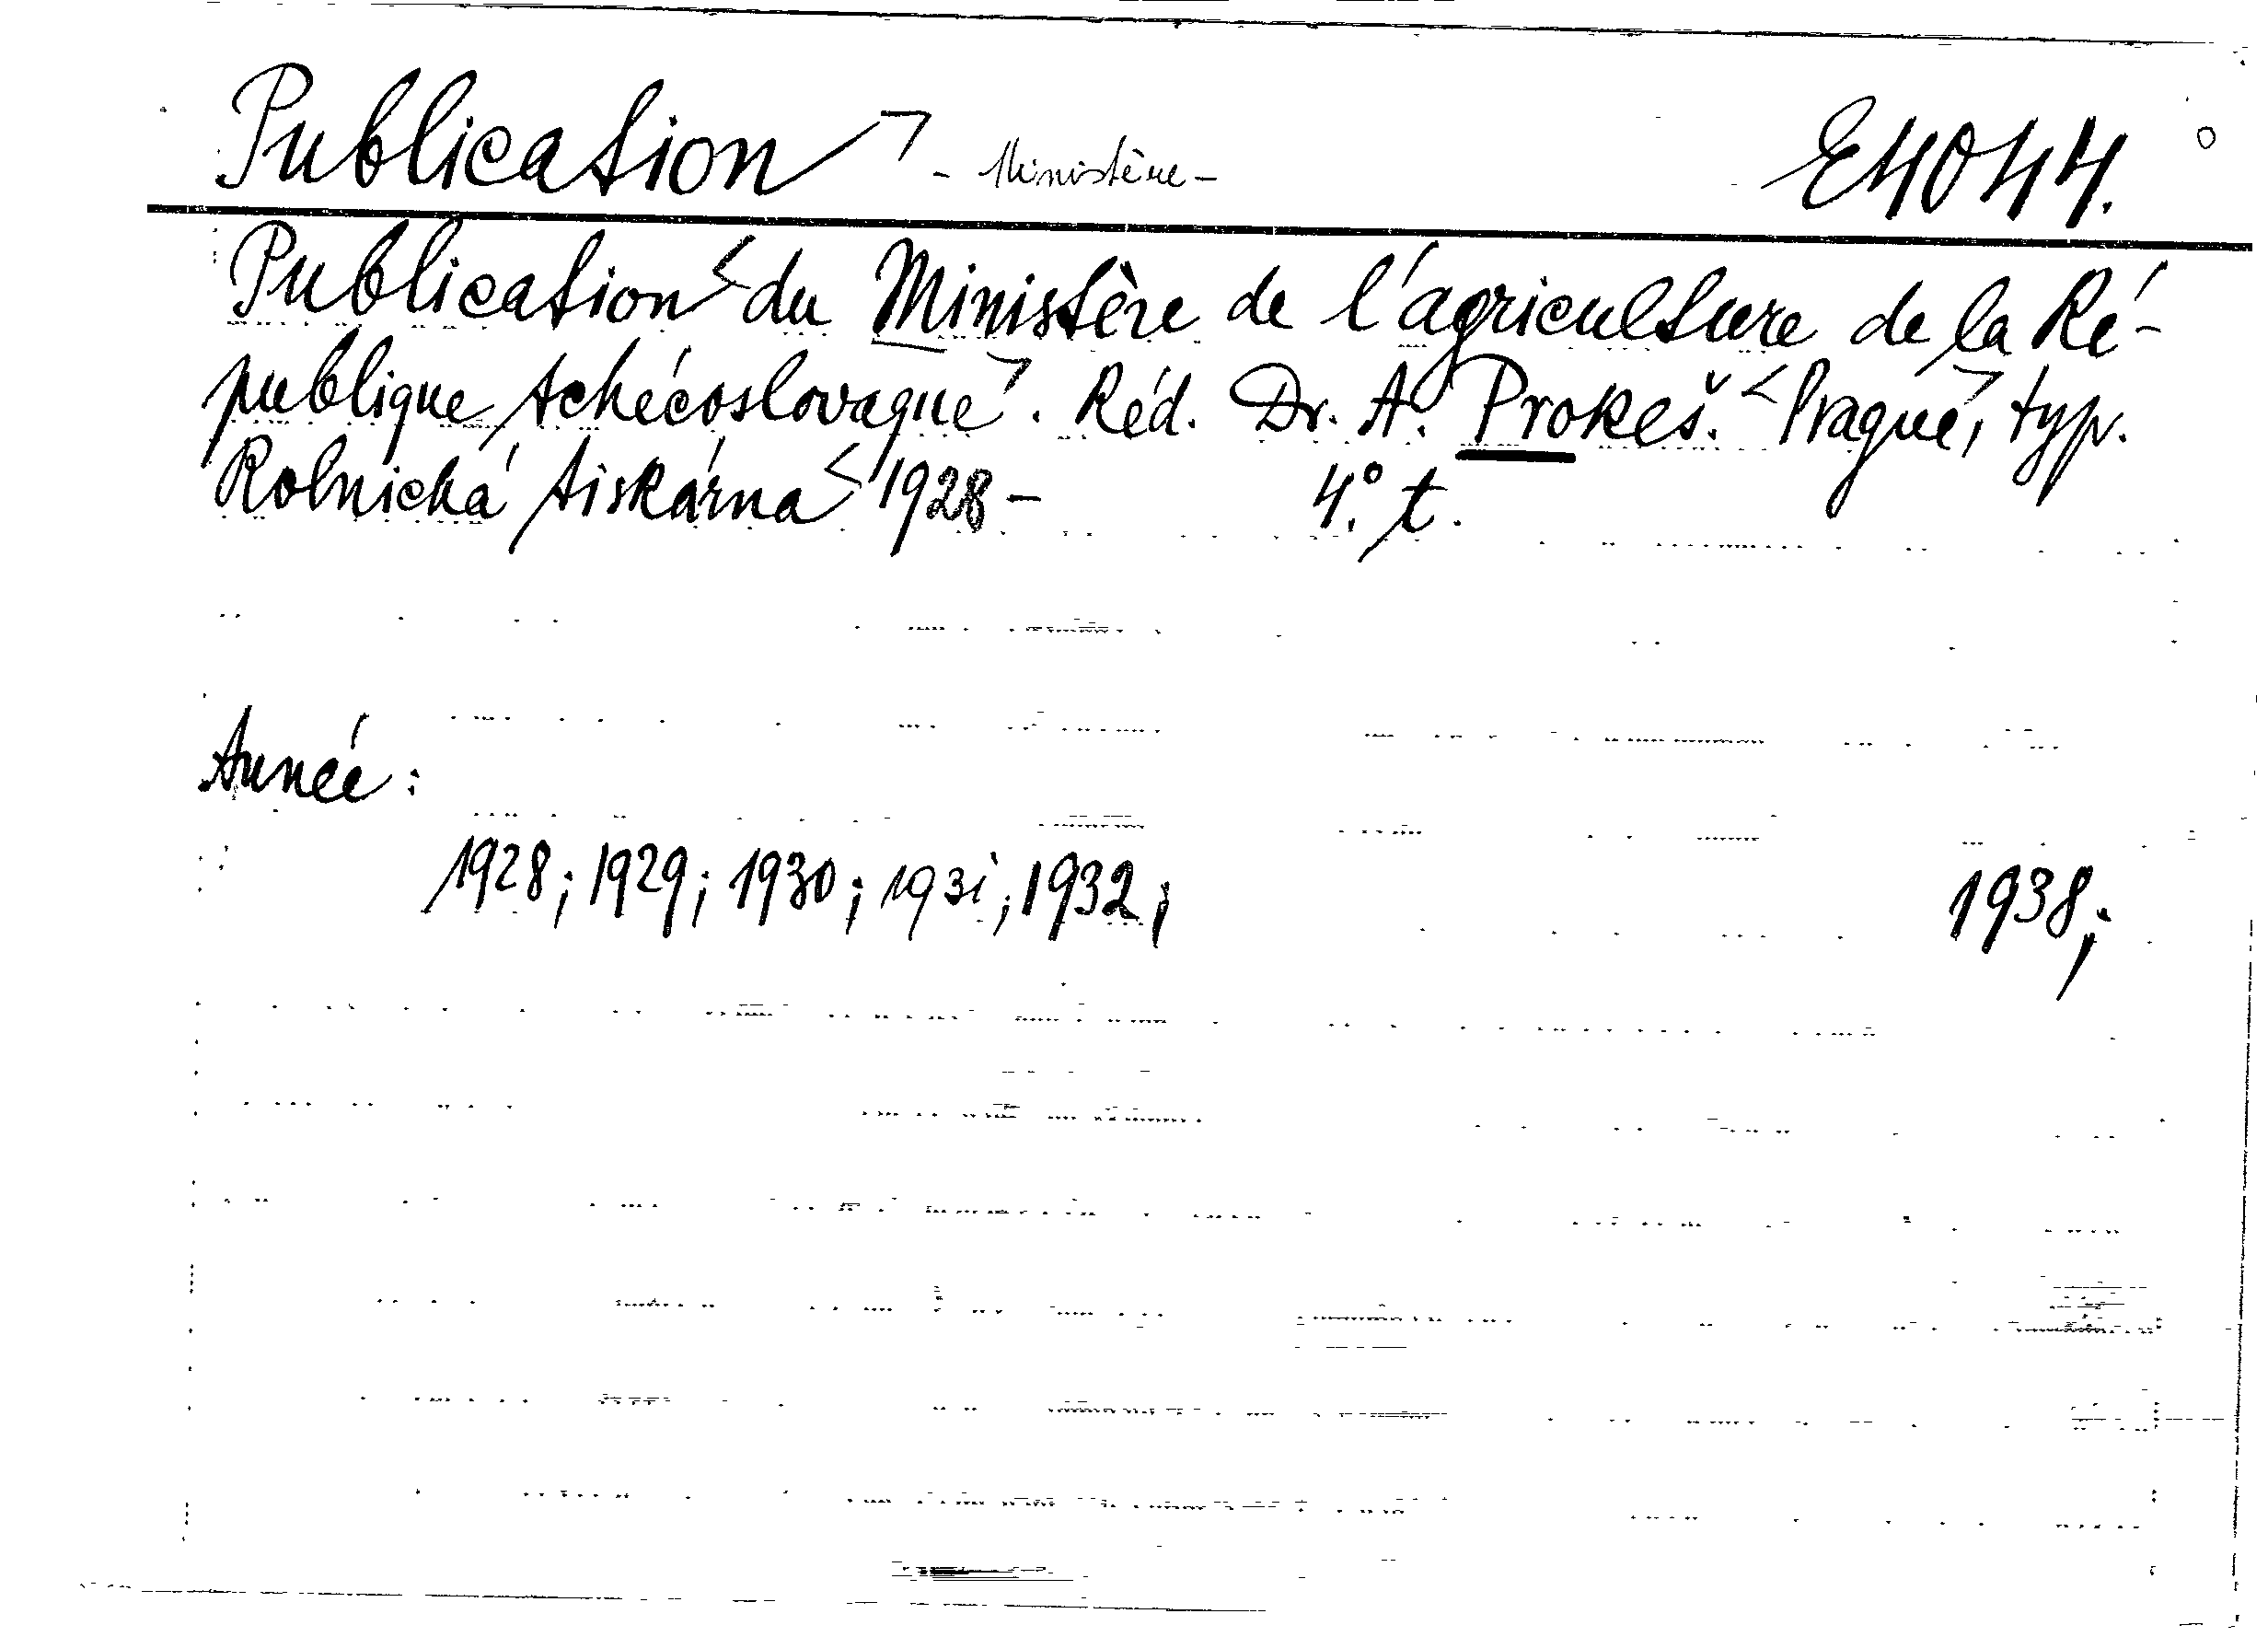 Publication - Ministère - E4044.
Publication du Ministère de l'agriculture de la Ré-
publique tchécoslovaque. Réd. Dr. A. Prokeš. Prague, typ.
Rolnická tiskárna 1928 - 4°. t.
Année:
1928; 1929; 1930; 1931; 1932; 1938;